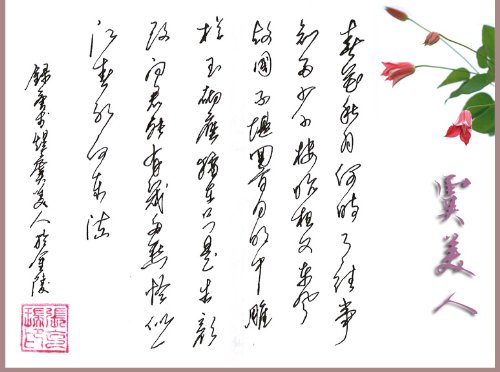 虞美人
春花秋月何時了往事
知多少小樓昨夜又東風
故國不堪回首月明中雕
欄玉砌應猶在只是朱顏
改問君能有幾多愁恰似一
江春水向東流
錄李煜虞美人於金陵